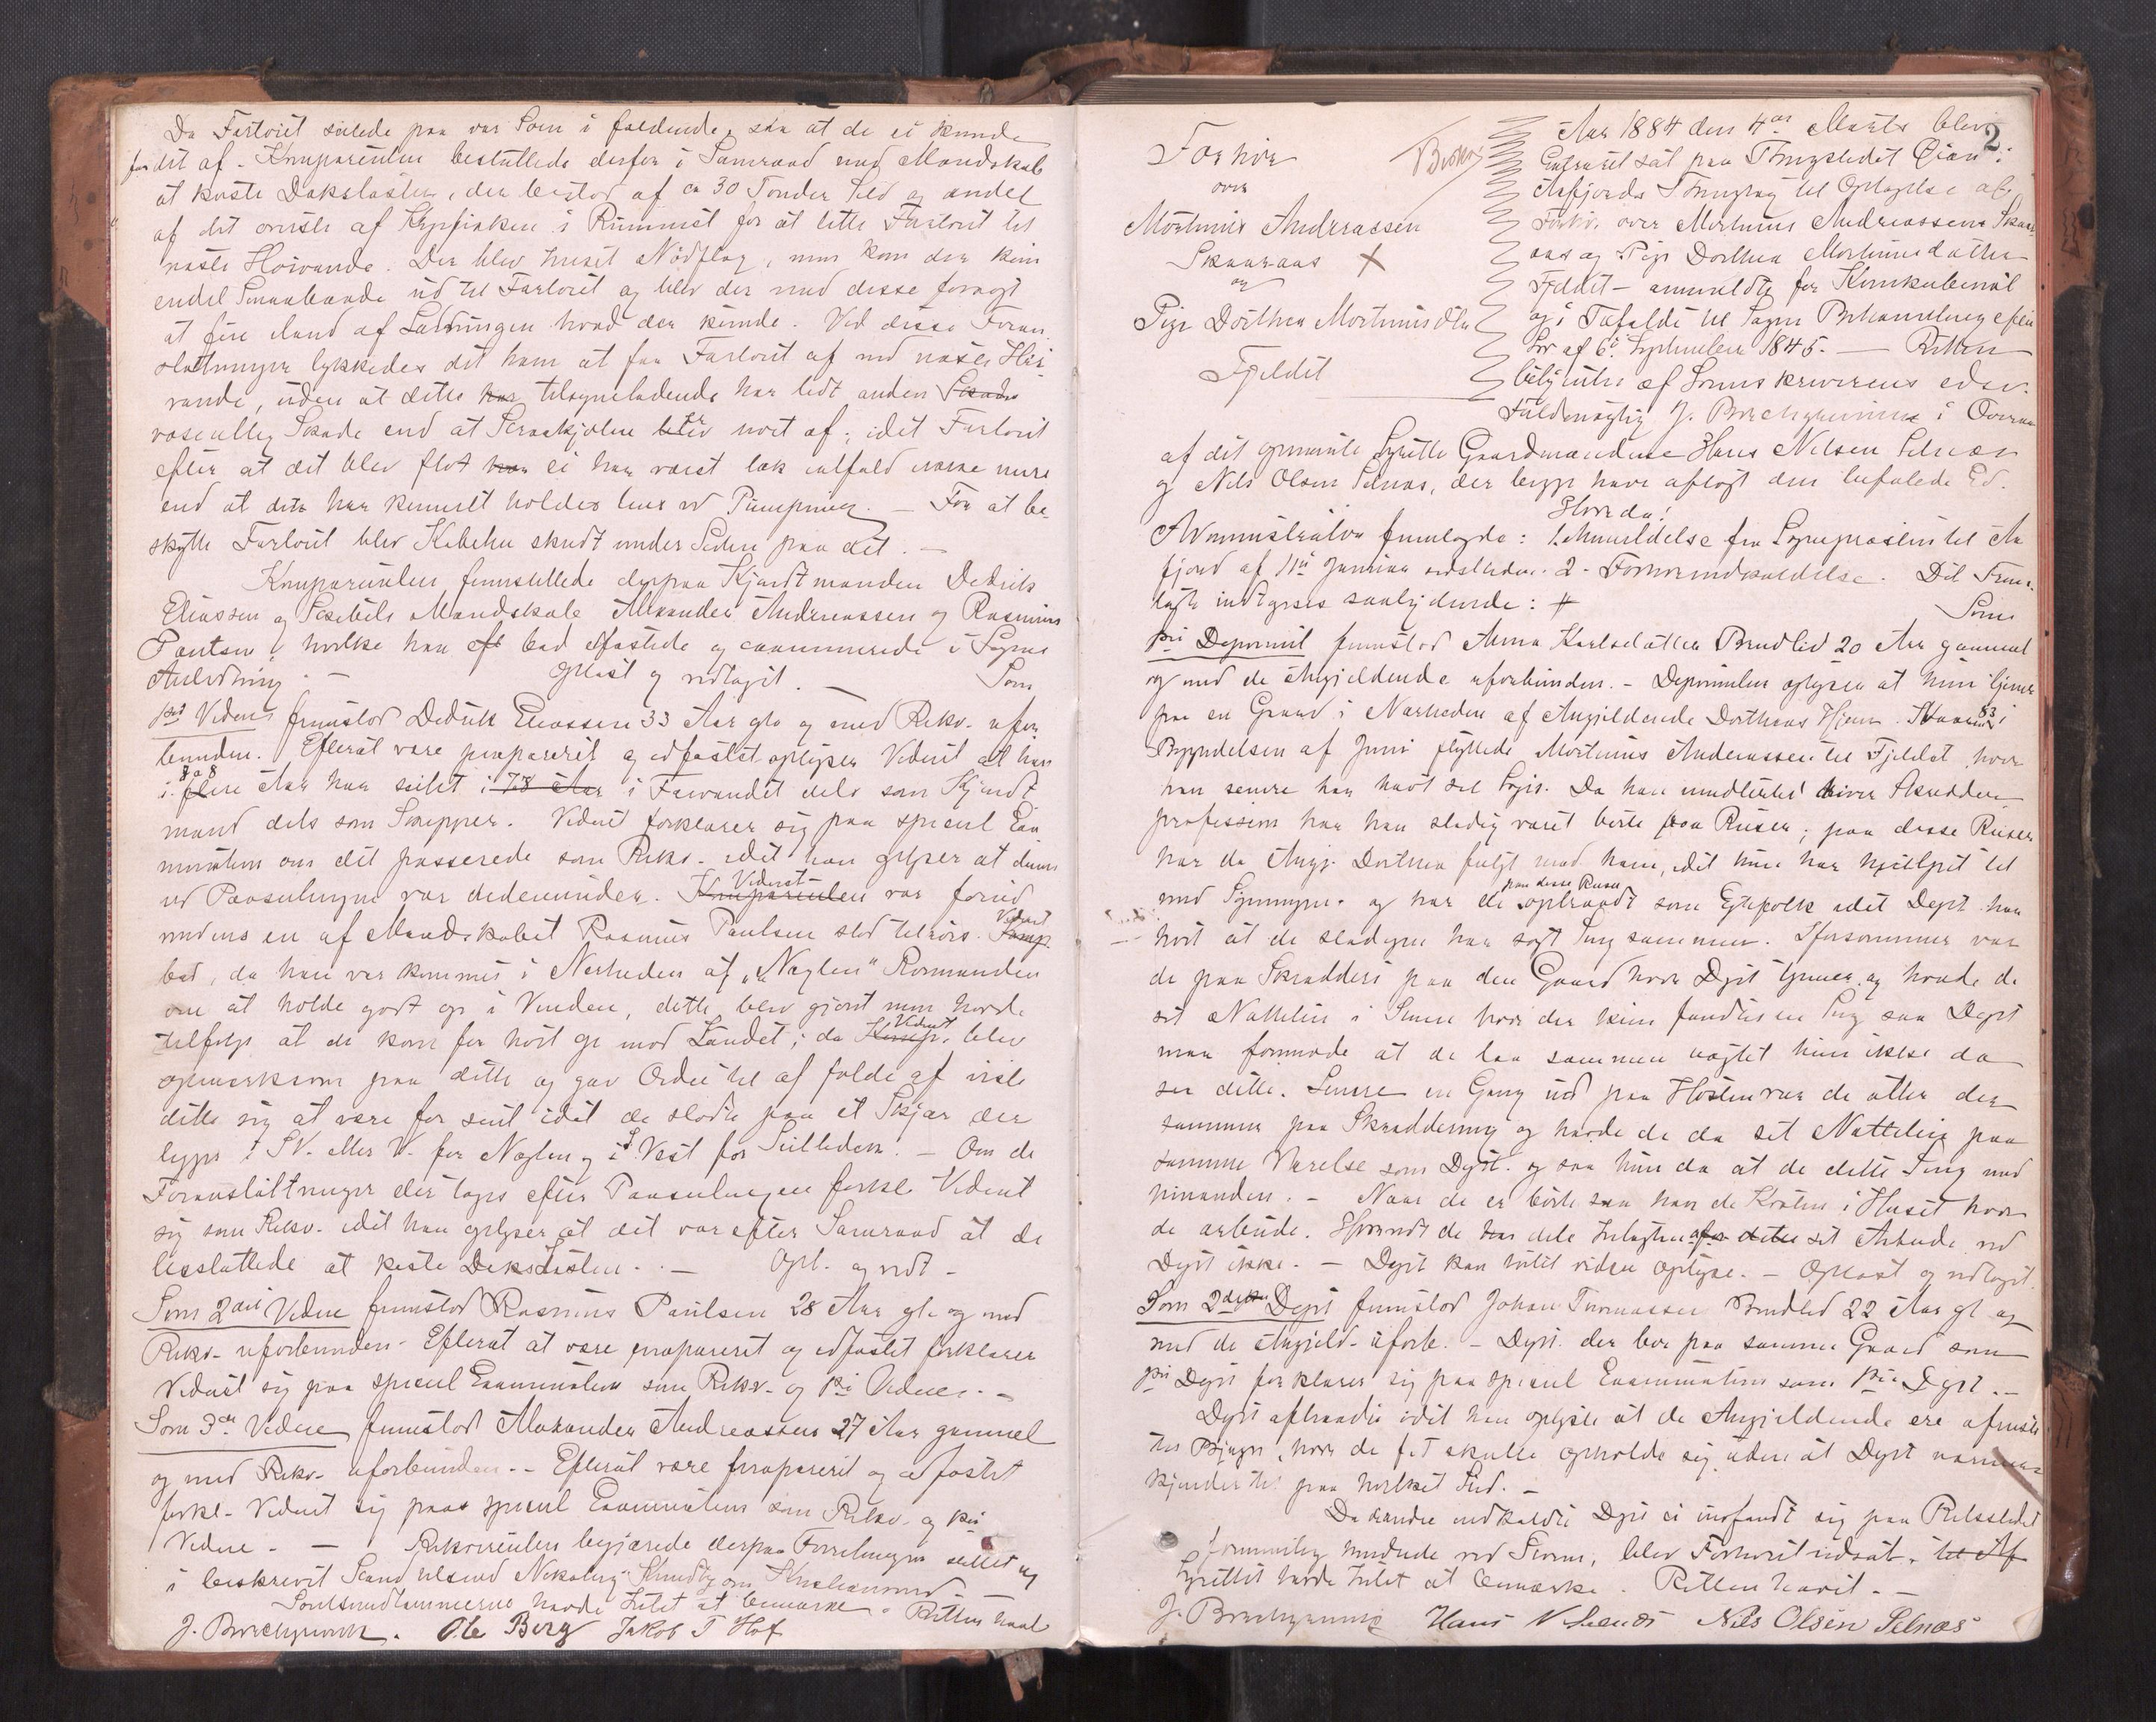 Da Fartøiet satte paa var Søen i faldende, saa at de ei kunde
faa det af. Komparenten besluttede derfor i Samraad med Mandskab
at kaste Dækslasten, der bestod af ca 30 Tønder Sild og endel
af det øverste af Klipfisken i Rummet for at lette Fartøiet til
næste Høivande. Der blev heiset Nødflag, men kom der kun
endel Smaabaade ud til Fartøiet og blev der med disse forsøgt
at føre iland af Ladningen hvad der kunde. Ved disse Foran-
staltninger lykkedes det ham at faa Fartøiet af ved næste Høi-
vande, uden at dette har tilsyneladende har lidt anden Skade
væsentlig Skade end at Straakjølen blev revet af; idet Fartøiet
efter at det blev flot har ei har været læk ialfald ikke mere
end at det har kunnet holdes læns ved Pumpning. – For at be-
skytte Fartøiet blev Kabelen skudt under Siden paa det. –
Komparenten fremstillede derpaa Kjendtmanden Dedrik
Eliassen og Skibets Mandskab Alexander Andreassen og Rasmus
Paulsen, hvilke han bad edfæstede og examinerede i Sagens
Anledning. – Oplæst og vedtaget. – Som
1ste Vidne fremstod Dedrik Eliassen 33 Aar gl. og med Rekv. ufor-
bunden. Efterat være præpareret og edfæstet oplyser Vidnet at han
7 a 8
i flere Aar har seilet i 7-8 Aar i Farvandet dels som Kjendt
mand dels som Skipper. Vidnet forklarer sig paa speciel Exa
mination om det passerede som Rekv. idet han oplyser at denne
Vidnet
ved Paaseilingen var dedenunder. Komparenten var forud
medens en af Mandskabet Rasmus Paulsen stod tilrørs. Vidnet Komp.
bad, da han var kommet i Nærheden af "Neglen" Rormanden
om at holde godt op i Vinden, dette blev gjort men havde
Vidnet
tilfølge at de kom for høit op mod Landet; da Komp. blev
opmærksom paa dette og gav Ordre til af falde af viste
dette sig at være for sent idet de stødte paa et Skjær der
ligger i SV. eller V. for Neglen og i S. Vest for Seilleden. – Om de
Foranstaltninger der toges efter Paaseilingen forkl. Vidnet
sig som Rekv. idet han oplyser at det var efter Samraad at de
besluttede at kaste Dækslasten. – Opl. og vedt –
Som 2det Vidne fremstod Rasmus Paulsen 28 Aar gl. og med
Rekv. uforbunden. Efterat at være præpareret og edfæstet forklarer
Vidnet sig paa speciel Examination som Rekv. og 1ste Vidne. –
Som 3de Vidne fremstod Alexander Andreassen 27 Aar gammel
og med Rekv. uforbunden. – Efterat være præpareret og edfæstet
forkl. Vidnet sig paa speciel Examination som Rekv. og 1ste
Vidne. – Rekvirenten begjærede derpaa Forretningen sluttet og
i beskrevet Stand tilsendt
Søretsmedlemmerne havde Intet at bemærke. Retten hævet
J. Brechgaard. Ole Berg Jakob T Hof
2
Forhør
over
Mortinus Andreassen
Skaaraas X
og
Pige Dorthea Mortinusdtr
Fjeldet
Aar 1884 den 4de Marts blev
Extraret sat paa Thingstedet Øien i
Aafjordens Thinglag til Optagelse af
Forhør over Mortinus Andreassen Skaar-
aas og Pige Dorthea Mortinusdatter
Fjeldet – anmeldte for Konkubinat
og i Tilfælde til Sagens Behandling efter
Lov af 6te September 1845. – Retten
betjentes af Sorenskriverens edsv.
Fuldmægtig J. Brechgaard i Overvær
af det opnævnte Lagrette Gaardmændene Hans Nilsen Selnæs
og Nils Olsen Selnæs, der begge have aflagt den befalede Ed.
Hvorda!
Administrator fremlagde: 1. Anmeldelse fra Sognepræsten til Aa
fjord af 11te Januar sidstleden. 2. Forhørsindkaldelse. Det Frem-
lagte indtages saalydende: # Som
1ste Deponent fremstod Anna Karlsdatter Brudlid 20 Aar gammel
og med de Angjeldende uforbunden. – Deponenten oplyser at hun tjener
paa en Gaard i Nærheden af Angjeldende Dortheas Hjem. 83 i
Begyndelsen af Juni flyttede Mortinus Andreassen til Fjeldet, hvor
han senere har havt sit Logis. Da han driver Skrædder
profession har han stadig været borte paa Reiser; paa disse Reiser
har da Angj. Dorthea fulgt med ham, idet hun har hjulpet til
paa disse Reiser
med Syningen og har de optraadt som Egtefolk idet Dept har
hørt at de stadigen har søgt Seng sammen. Iforsommer var
de paa Skrædderi paa den Gaard hvor Dept tjener og havde de
sit Natteleie i Stuen hvor der kun fandtes en Seng saa Dept
maa formode at de laa sammen uagtet hun ikke da
saa dette. Senere en Gang ud paa Høsten var de atter der
sammen paa Skræddering og havde de da sit Natteleie paa
samme Værelse som Dept. og saa hun da at de delte Seng med
hinanden. – Naar de er borte saa har de Kosten i Huset hvor
de arbeide. Hvorvidt de har dele Indtægten af dette sit Arbeide ved
Dept ikke. – Dept kan intet videre oplyse. – Oplæst og vedtaget.
Som 2den Dept fremstod Johan Thomassen Brudlid 22 Aar gl og
med de Angjeld. uforb. – Dept. der bor paa samme Gaard som
1ste Dept forklarer sig paa speciel Examination som 1ste Dept. –
Dept aftraadte idet han oplyste at de Angjeldende ere afreiste
til Bjugn, hvor de f.T. skulle opholde sig uden at Dept nærmere
kjender til paa hvilket Sted. –
Da de andre indkaldte Depts ei indfandt sig paa Retsstedet
formentlig hindrede ved Storm, blev Forhøret udsat. til Af
Lagrettet havde Intet at bemærke. Retten hævet. –
J. Brechgaard Hans N Selnæs Nils Olsen Selnæs